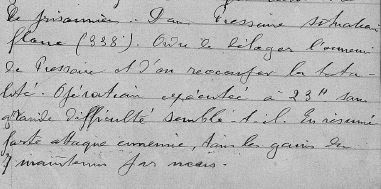 de prisonniers. Dans Pressoire situation
flanc (338). Ordre de dégager l'ennemi
de Pressoire et d'en reoccuper la tota-
lité. Opération exécutée à 23h sans
grande difficulté semble-t-il. En résumé
forte attaque ennemie, tous les gains du
7 maintenus par nous.